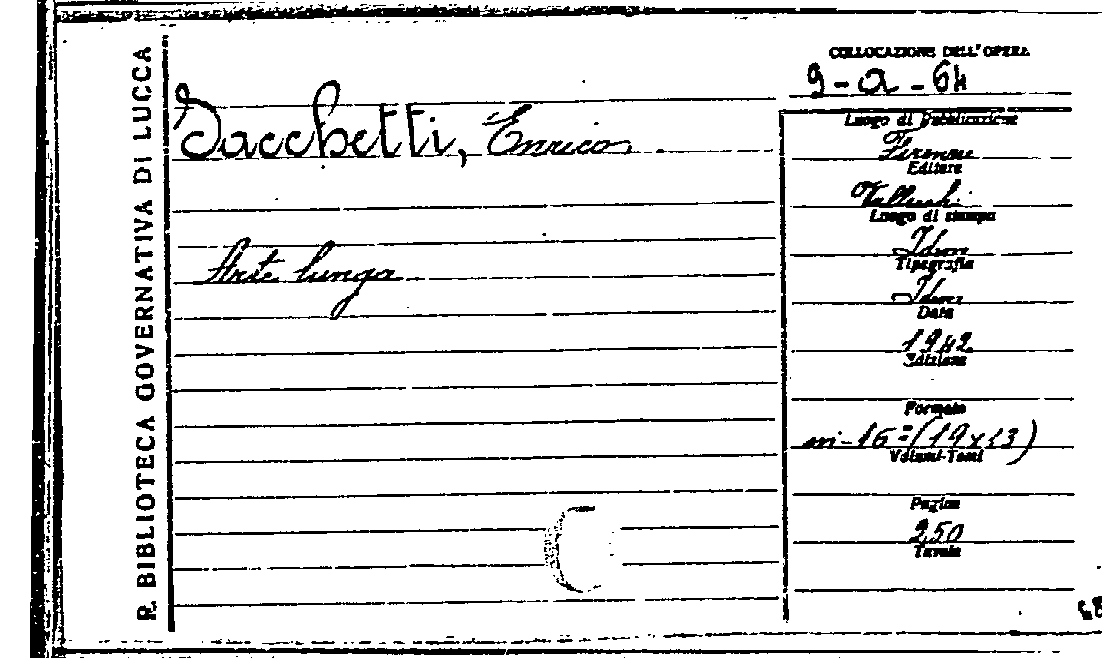 R. BIBLIOTECA GOVERNATIVA DI LUCCA
COLLOCAZIONE DELL'OPERA
9-a-64
Sacchetti, Enrico.
Arte lunga
Luogo di Pubblicazione
Firenze
Editore
Vallecchi
Luogo di stampa
Idem
Tipografia
Idem
Data
1942
Edizione
Formato
in-16º (19x13)
Volumi-Tomi
Pagine
250
Tavole